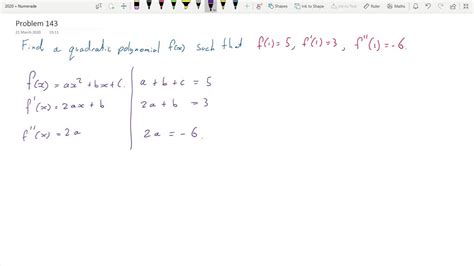 2020 - Numerade
Shapes
Ink to Shape
Ink to Text
Ink to Math
Problem 143
21 March 2020 15:11
Find a quadratic polynomial f(x) such that f(1) = 5, f'(1) = 3, f''(1) = -6.
f(x) = ax² + bx + c. a + b + c = 5
f'(x) = 2ax + b 2a + b = 3
f''(x) = 2a 2a = -6.